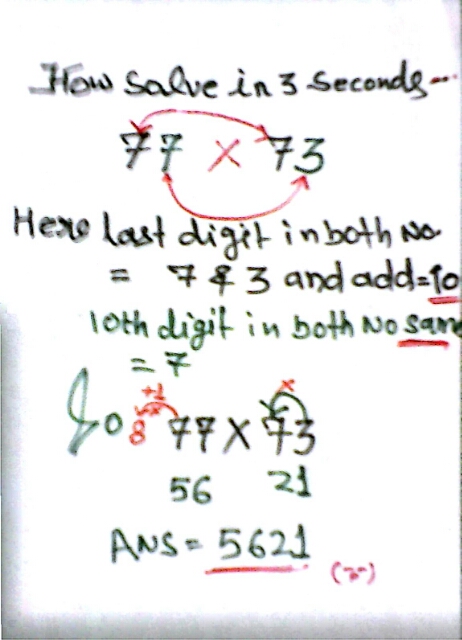 How Salve in 3 Seconds...
77 × 73
Here last digit in both No
= 7 & 3 and add=10
10th digit in both No same
= 7
+1 ×
So 8 77 × 73
56 21
ANS = 5621